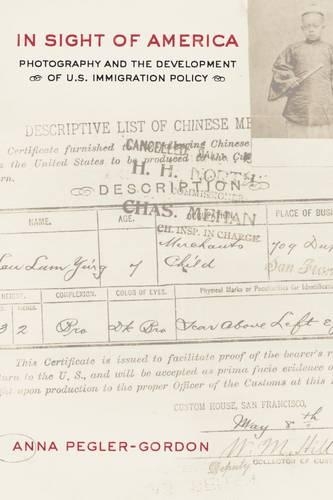 IN SIGHT OF AMERICA
PHOTOGRAPHY AND THE DEVELOPMENT
OF U.S. IMMIGRATION POLICY
DESCRIPTIVE LIST OF CHINESE ME
Certificate furnished to the following Chinese
the United States to be produced to the C
rn.
CANCELLED
H. H. NORTH
COMMISSIONER
DESCRIPTION
CHAS. MEHAN
CH. INSP. IN CHARGE
NAME. AGE. PLACE OF BUS
Lau Lam Ying 7 Merchants Child 709 Dup
San Fran
HEIGHT. COMPLEXION. COLOR OF EYES. Physical Marks or Peculiarities for Identification
3 2 Bro Dk Bro Scar above Left Ey
This Certificate is issued to facilitate proof of the bearer's r
turn to the U. S., and will be accepted as prima facie evidence o
ght upon production to the proper Officer of the Customs at this
CUSTOM HOUSE, SAN FRANCISCO,
May 8th
ANNA PEGLER-GORDON
W. M. Hil
Deputy COLLECTOR OF CUSTO